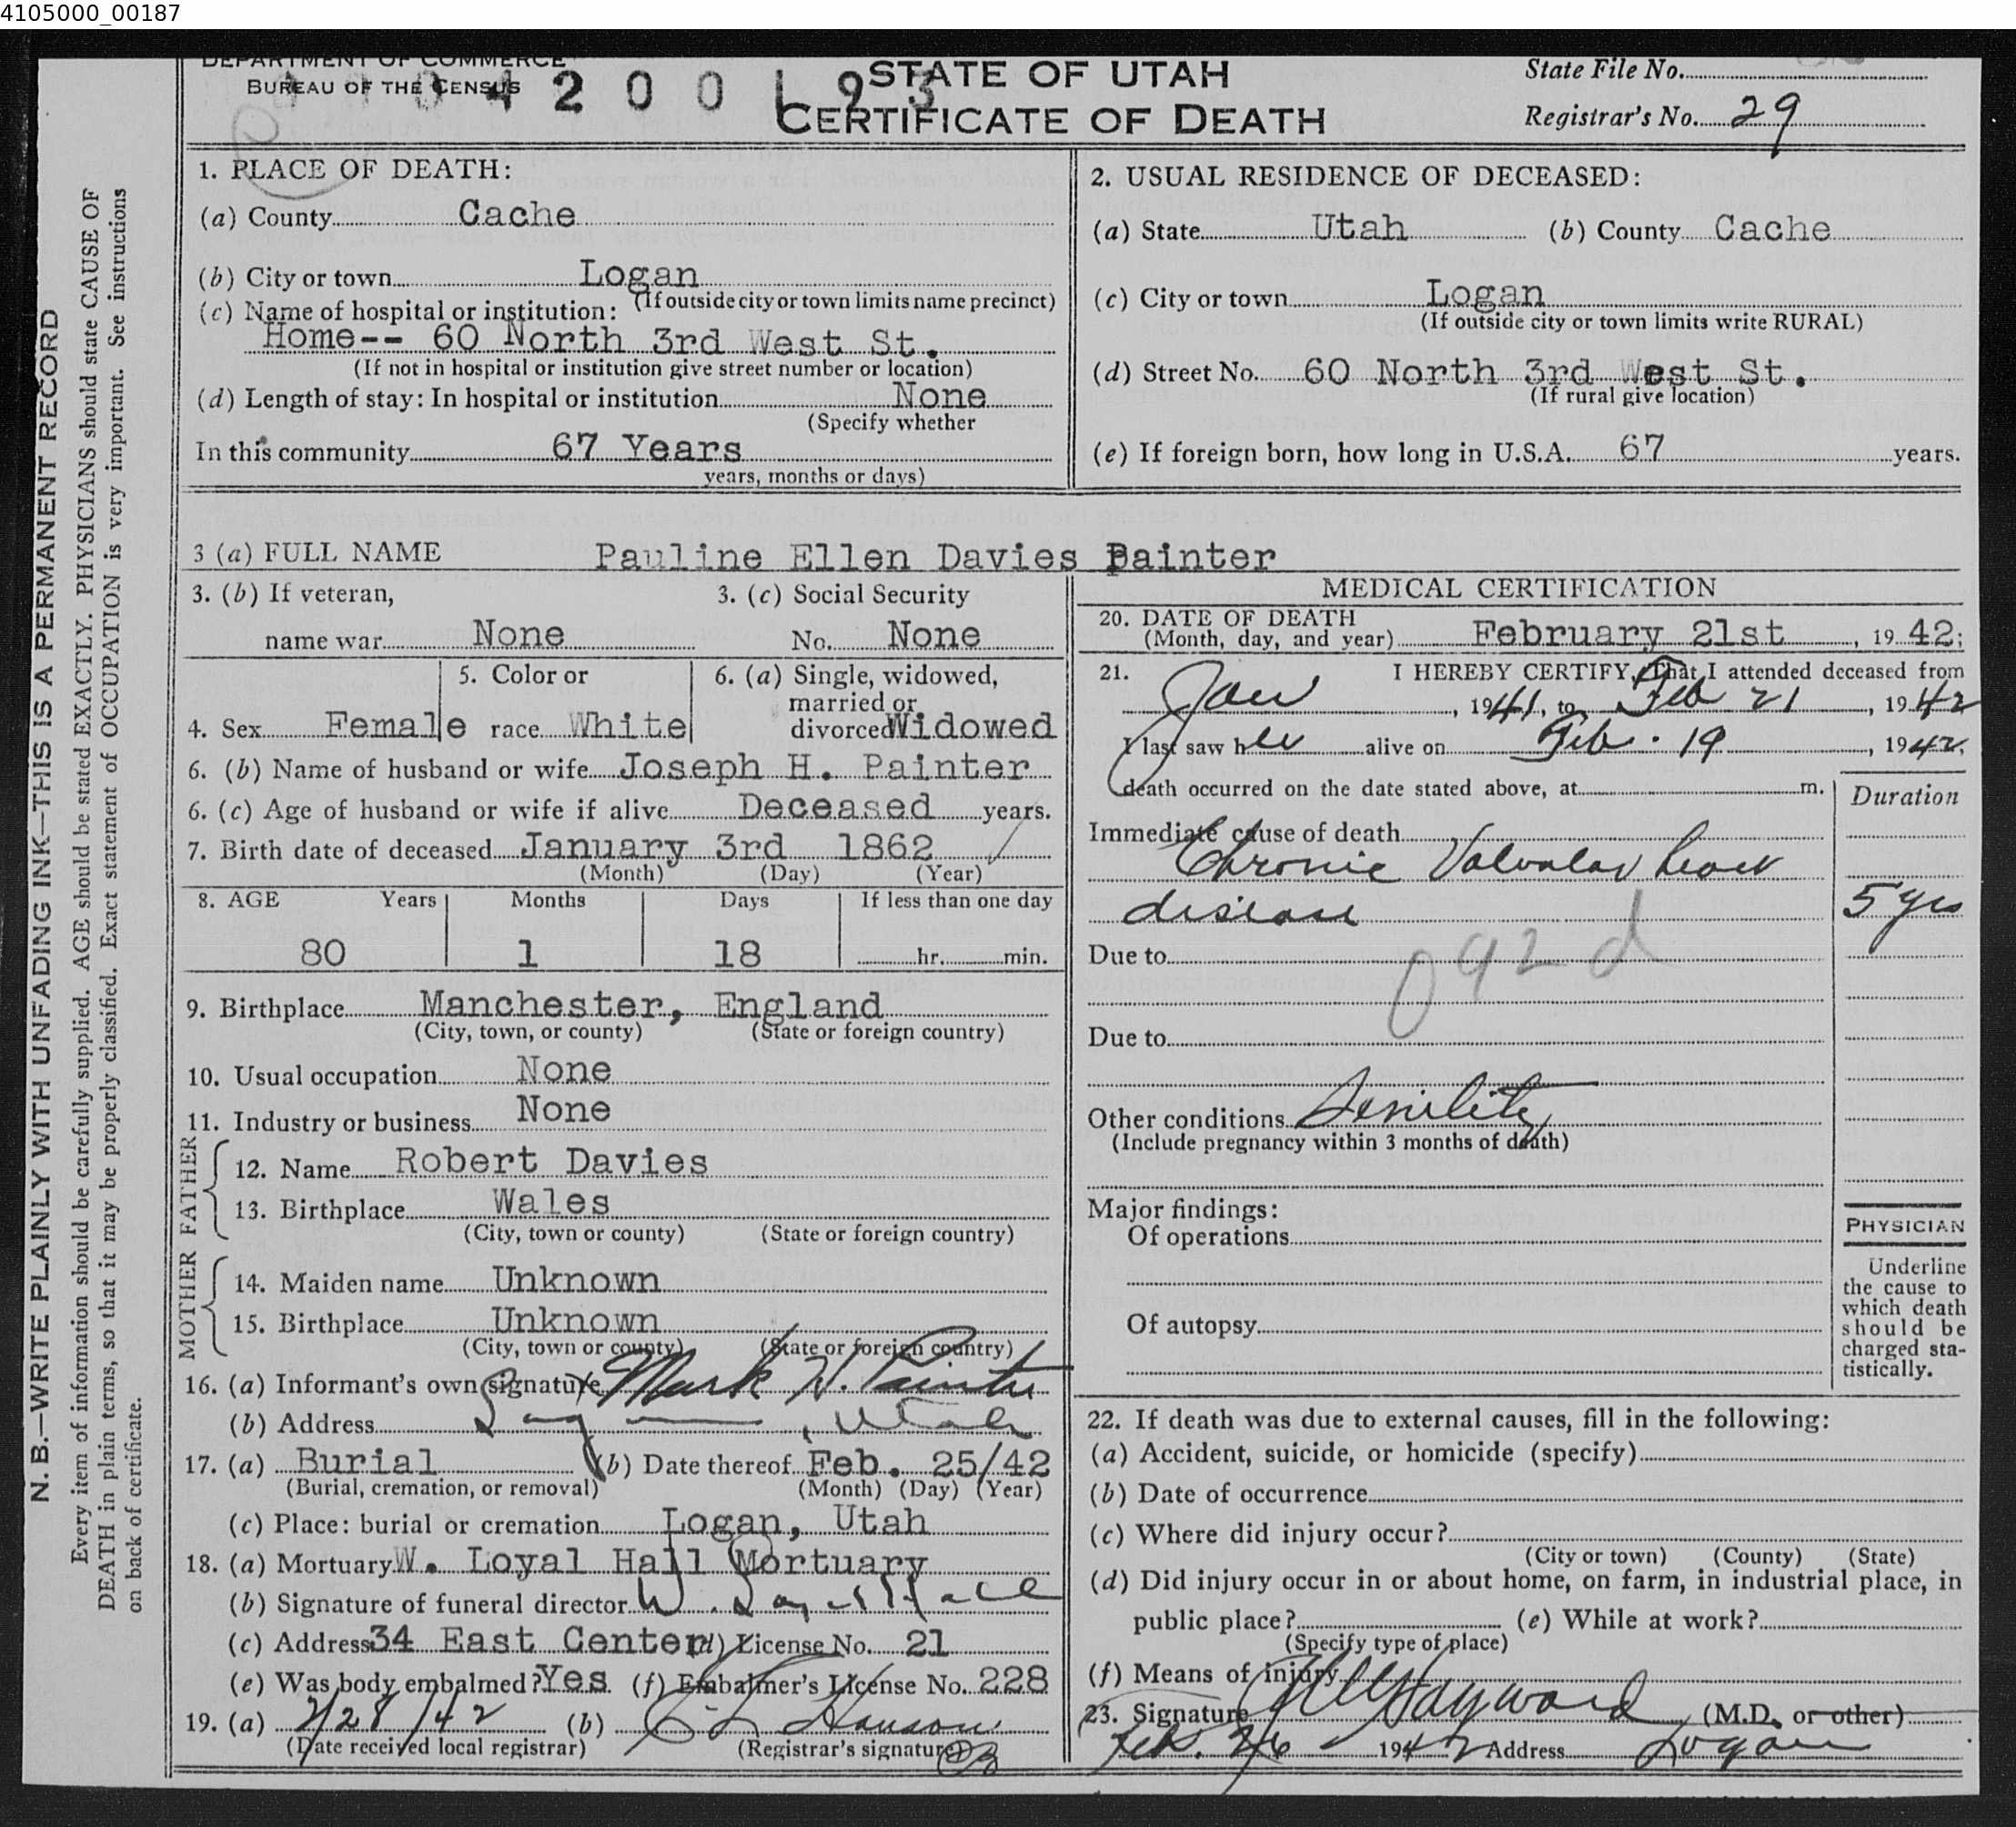 4105000_00187
DEPARTMENT OF COMMERCE
BUREAU OF THE CENSUS
4200193
STATE OF UTAH
CERTIFICATE OF DEATH
State File No.
Registrar's No. 29
1. PLACE OF DEATH:
(a) County Cache
(b) City or town Logan
(If outside city or town limits name precinct)
(c) Name of hospital or institution:
Home-- 60 North 3rd West St.
(If not in hospital or institution give street number or location)
(d) Length of stay: In hospital or institution None
(Specify whether
In this community 67 Years
years, months or days)
2. USUAL RESIDENCE OF DECEASED:
(a) State Utah (b) County Cache
(c) City or town Logan
(If outside city or town limits write RURAL)
(d) Street No. 60 North 3rd West St.
(If rural give location)
(e) If foreign born, how long in U.S.A. 67 years.
3 (a) FULL NAME Pauline Ellen Davies Painter
3. (b) If veteran, name war None
3. (c) Social Security No. None
4. Sex Female
5. Color or race White
6. (a) Single, widowed, married or divorced Widowed
6. (b) Name of husband or wife Joseph H. Painter
6. (c) Age of husband or wife if alive Deceased years.
7. Birth date of deceased January 3rd 1862
(Month) (Day) (Year)
8. AGE Years Months Days If less than one day
80 1 18 hr. min.
9. Birthplace Manchester, England
(City, town, or county) (State or foreign country)
10. Usual occupation None
11. Industry or business None
FATHER
12. Name Robert Davies
13. Birthplace Wales
(City, town or county) (State or foreign country)
MOTHER
14. Maiden name Unknown
15. Birthplace Unknown
(City, town or county) (State or foreign country)
16. (a) Informant's own signature Mark H. Painter
(b) Address Logan, Utah
17. (a) Burial (b) Date thereof Feb. 25/42
(Burial, cremation, or removal) (Month) (Day) (Year)
(c) Place: burial or cremation Logan, Utah
18. (a) Mortuary W. Loyal Hall Mortuary
(b) Signature of funeral director W. Loyal Hall
(c) Address 34 East Center (d) License No. 21
(e) Was body embalmed? Yes (f) Embalmer's License No. 228
19. (a) 2/28/42 (b) Hanson
(Date received local registrar) (Registrar's signature)
MEDICAL CERTIFICATION
20. DATE OF DEATH
(Month, day, and year) February 21st, 1942;
21. I HEREBY CERTIFY, That I attended deceased from
Jan, 1941, to Feb 21, 1942
I last saw her alive on Feb. 19, 1942,
death occurred on the date stated above, at m.
Duration
Immediate cause of death
Chronic Valvular heart
disease 5 yrs
Due to 092d
Due to
Other conditions Senility
(Include pregnancy within 3 months of death)
Major findings:
Of operations
Of autopsy
PHYSICIAN
Underline
the cause to
which death
should be
charged sta-
tistically.
22. If death was due to external causes, fill in the following:
(a) Accident, suicide, or homicide (specify)
(b) Date of occurrence
(c) Where did injury occur?
(City or town) (County) (State)
(d) Did injury occur in or about home, on farm, in industrial place, in
public place? (e) While at work?
(Specify type of place)
(f) Means of injury
23. Signature Hayward (M.D. or other)
Feb. 26 1942 Address Logan
N. B.—WRITE PLAINLY WITH UNFADING INK—THIS IS A PERMANENT RECORD
Every item of information should be carefully supplied. AGE should be stated EXACTLY. PHYSICIANS should state CAUSE OF
DEATH in plain terms, so that it may be properly classified. Exact statement of OCCUPATION is very important. See instructions
on back of certificate.